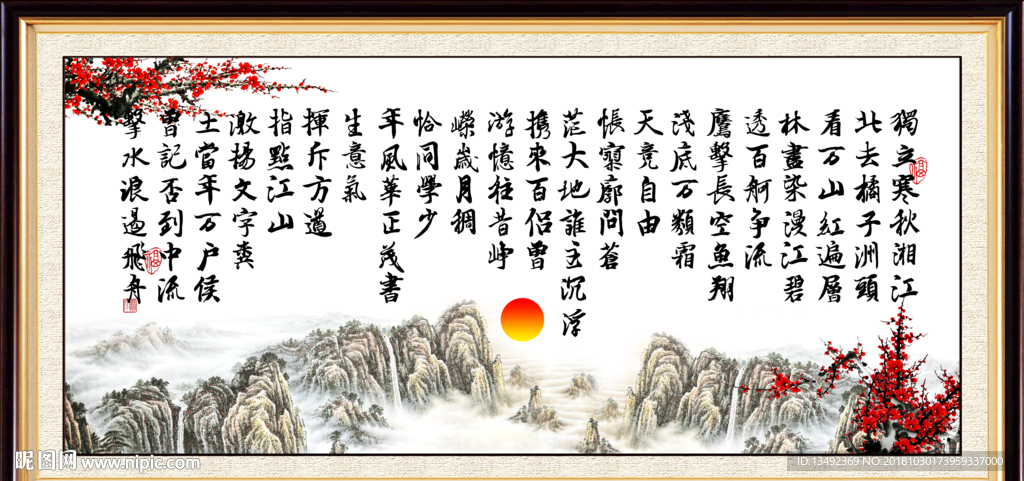 獨立寒秋湘江
北去橘子洲頭
看万山紅遍層
林盡染漫江碧
透百舸争流
鷹擊長空魚翔
淺底万類霜
天竞自由
悵寥廓問蒼
茫大地誰主沉浮
携來百侣曾
游憶往昔峥
嶸歲月稠
恰同學少
年風華正茂書
生意氣
揮斥方遒
指點江山
激揚文字糞
土當年万户侯
曾記否到中流
擊水浪遏飛舟
昵图网 www.nipic.com
ID:13492369 NO:20181030173959337000